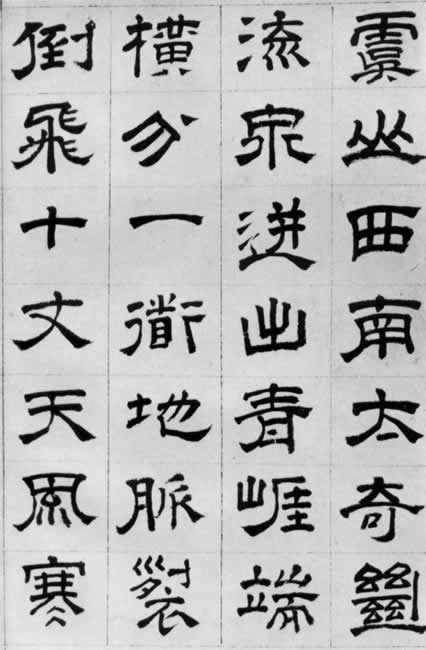 虞山西南太奇𢇍
流泉迸出青崕端
橫分一衜地脈裂
倒飛十丈天風寒